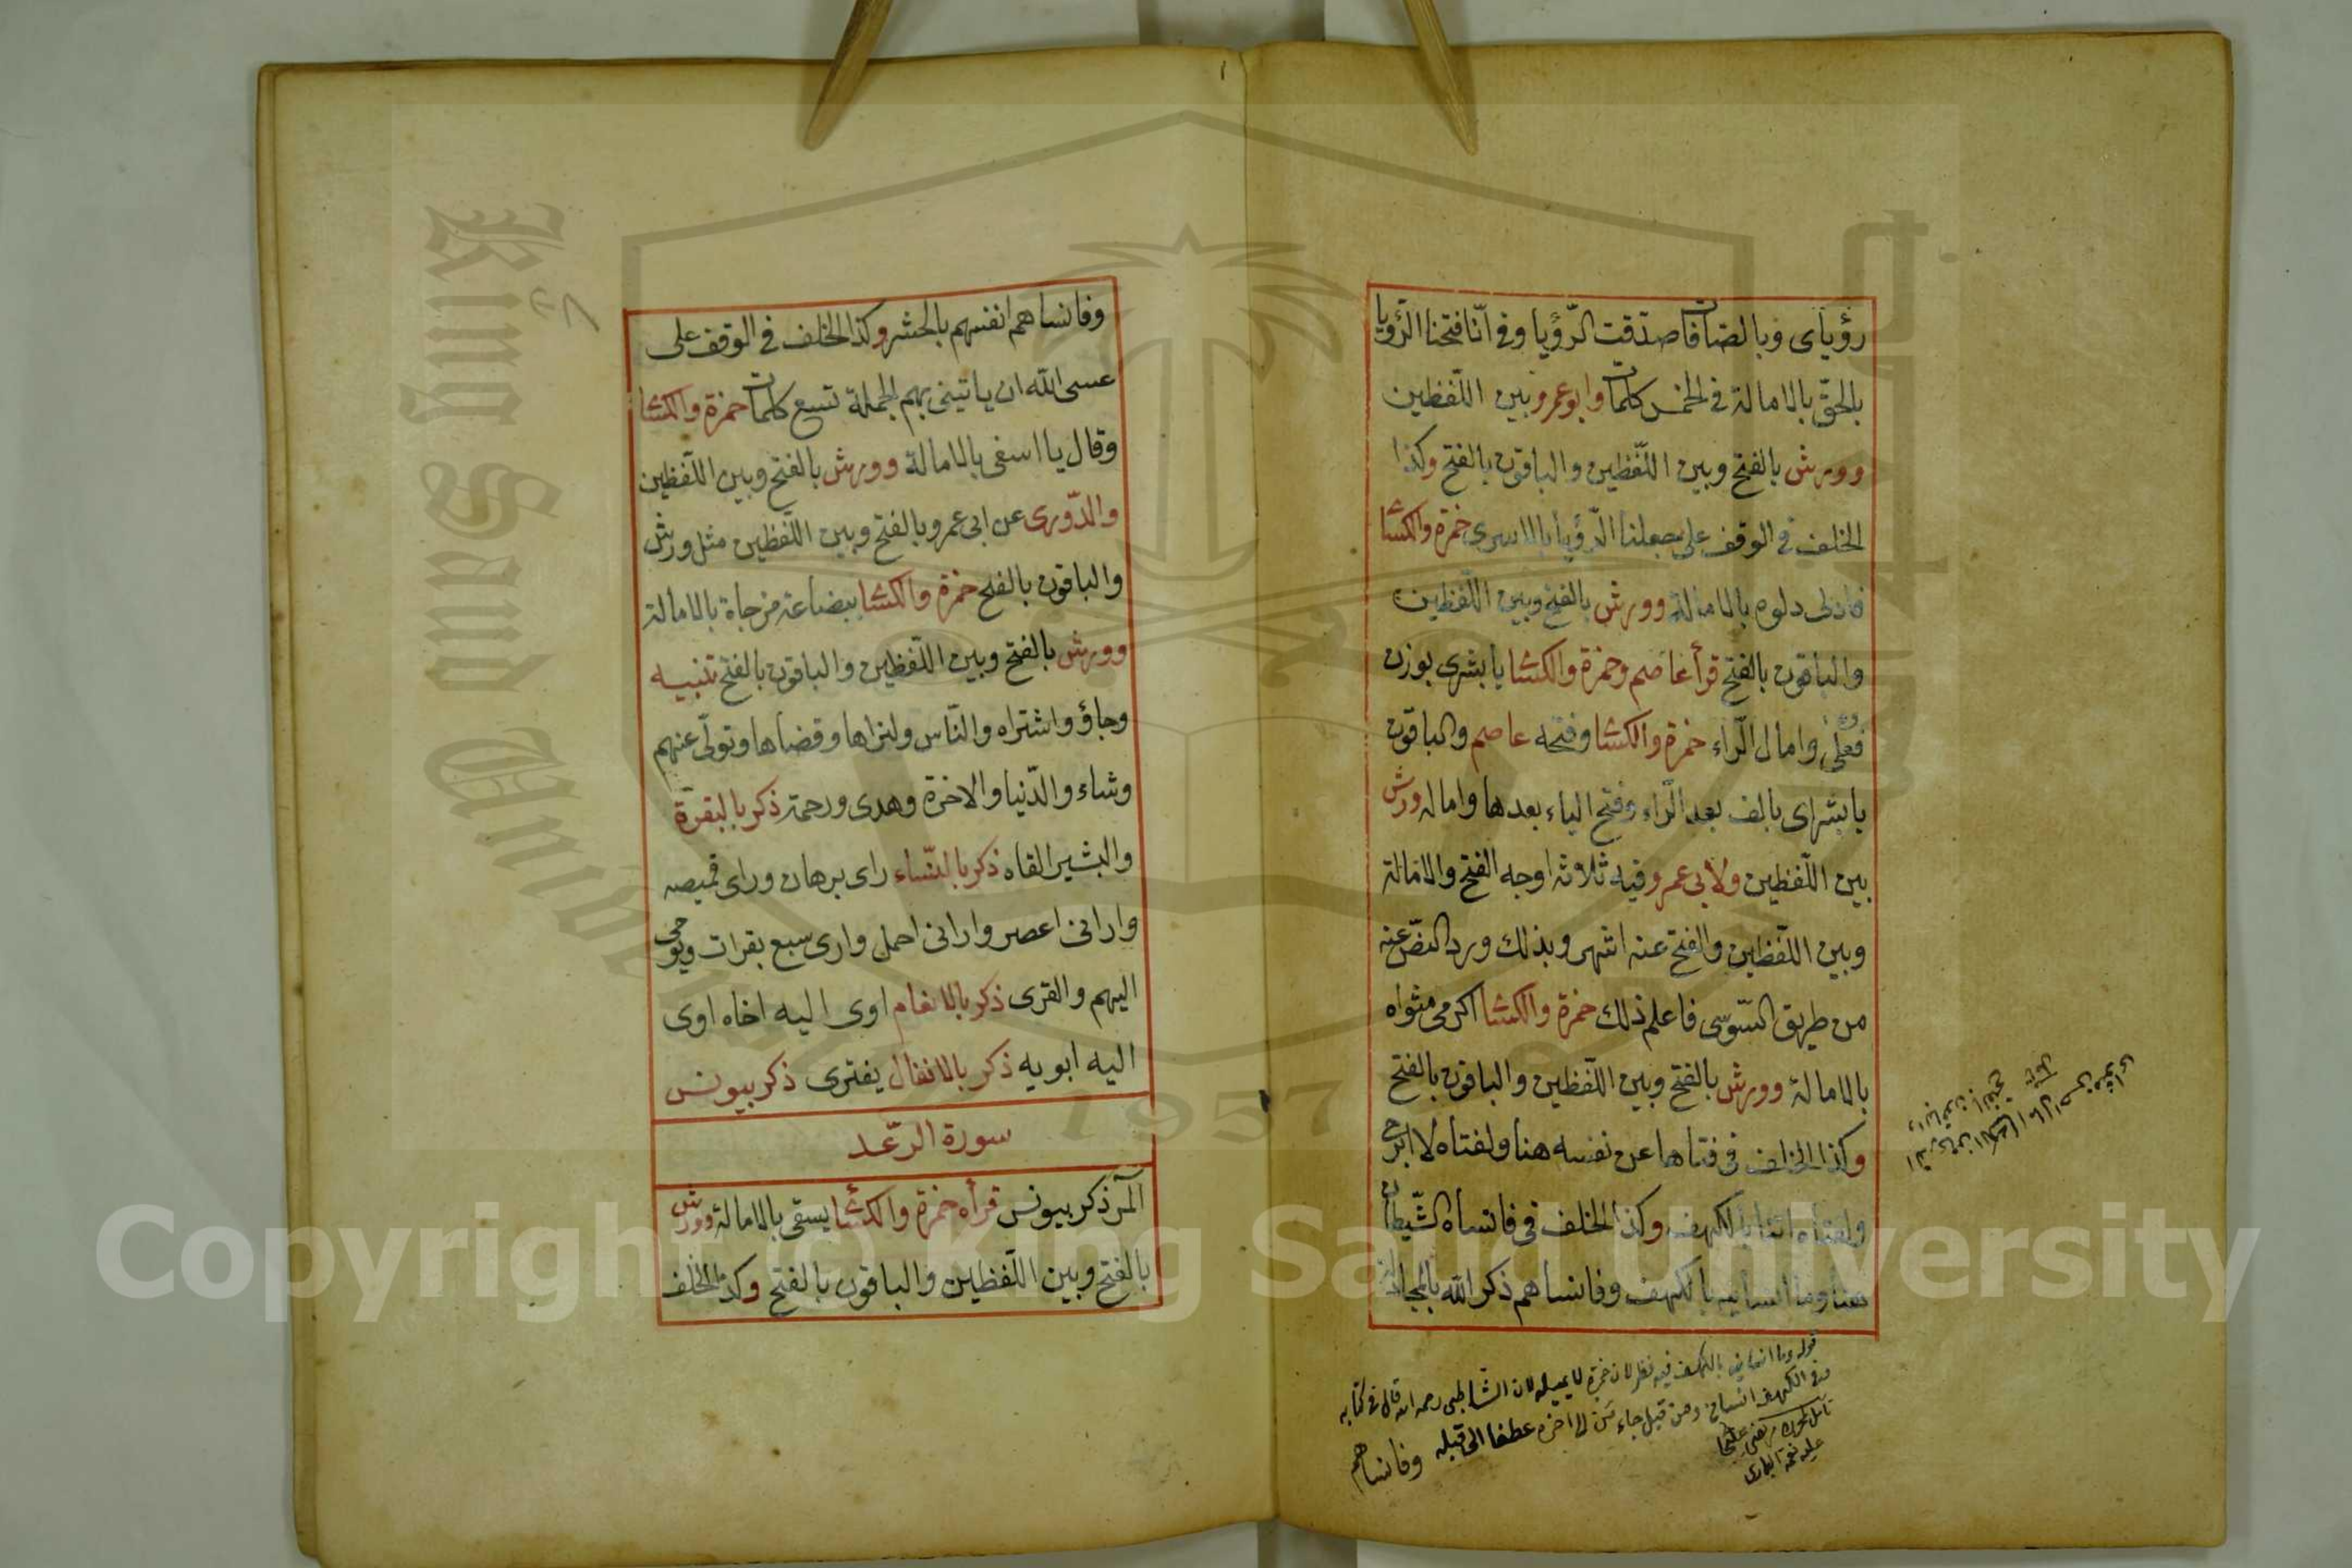 رؤياى وبالصافات قد صدقت الرّؤيا وفى انّا فتحنا الرّؤيا
بالحقّ بالامالة فى الخمس كلمات وابو عمرو بين اللّفظين
وورش بالفتح وبين اللّفظين والباقون بالفتح وكذا
الخلف فى الوقف على جعلنا الرّؤيا بالاسرى حمزة والكسائى
فادلى دلوه بالامالة وورش بالفتح وبين اللّفظين
والباقون بالفتح قرأ عاصم وحمزة والكسائى يا بشرى بوزن
فعلى وامال الرّاء حمزة والكسائى وفتحه عاصم والباقون
يا بشراى بالف بعد الرّاء وفتح الياء بعدها واماله ورش
بين اللّفظين ولابى عمرو فيه ثلاثة اوجه الفتح والامالة
وبين اللّفظين والفتح عنه اشهر وبذلك ورد النصّ عنه
من طريق السّوسى فاعلم ذلك حمزة والكسائى اكرمى مثواه
بالامالة وورش بالفتح وبين اللّفظين والباقون بالفتح
وكذا الخلف فى فتاها عن نفسه هنا ولفتاه لا ابرح
ولفتاه اتنا بالكهف وكذا الخلف فى فانساه الشّيطان
هنا وما انسانيه بالكهف وفانساهم ذكر الله بالمجادلة
قوله وما انسانيه بالكهف فيه نظر لان حمزة لا يميله لان الشاطبى رحمه الله قال فى كتابه
وفى الكهف انسانى ومن قبل جاء من الى اخره عطفا الى قبله
وفانساهم
وفانساهم انفسهم بالحشر وكذا الخلف فى الوقف على
عسى الله ان ياتينى بهم الجملة تسع كلمات حمزة والكسائى
وقال يا اسفى بالامالة وورش بالفتح وبين اللّفظين
والدّورى عن ابى عمرو بالفتح وبين اللّفظين مثل ورش
والباقون بالفتح حمزة والكسائى ببضاعة مزجاة بالامالة
وورش بالفتح وبين اللّفظين والباقون بالفتح تنبيه
وجاؤ واشتراه والنّاس ولنراها وقضاها وتولّى عنهم
وشاء والدّنيا والاخرة وهدى ورحمة ذكر بالبقرة
والبشير القاه ذكر بالنّساء راى برهان وراى قميصه
وارانى اعصر وارانى احمل وارى سبع بقرات ويوحى
اليهم والقرى ذكر بالانعام اوى اليه اخاه اوى
اليه ابويه ذكر بالانفال يفترى ذكر بيونس
سورة الرّعد
آلمر ذكر بيونس قرأه حمزة والكسائى يسقى بالامالة وورش
بالفتح وبين اللّفظين والباقون بالفتح وكذا الخلف
King Saud University
1957
Copyright © King Saud University